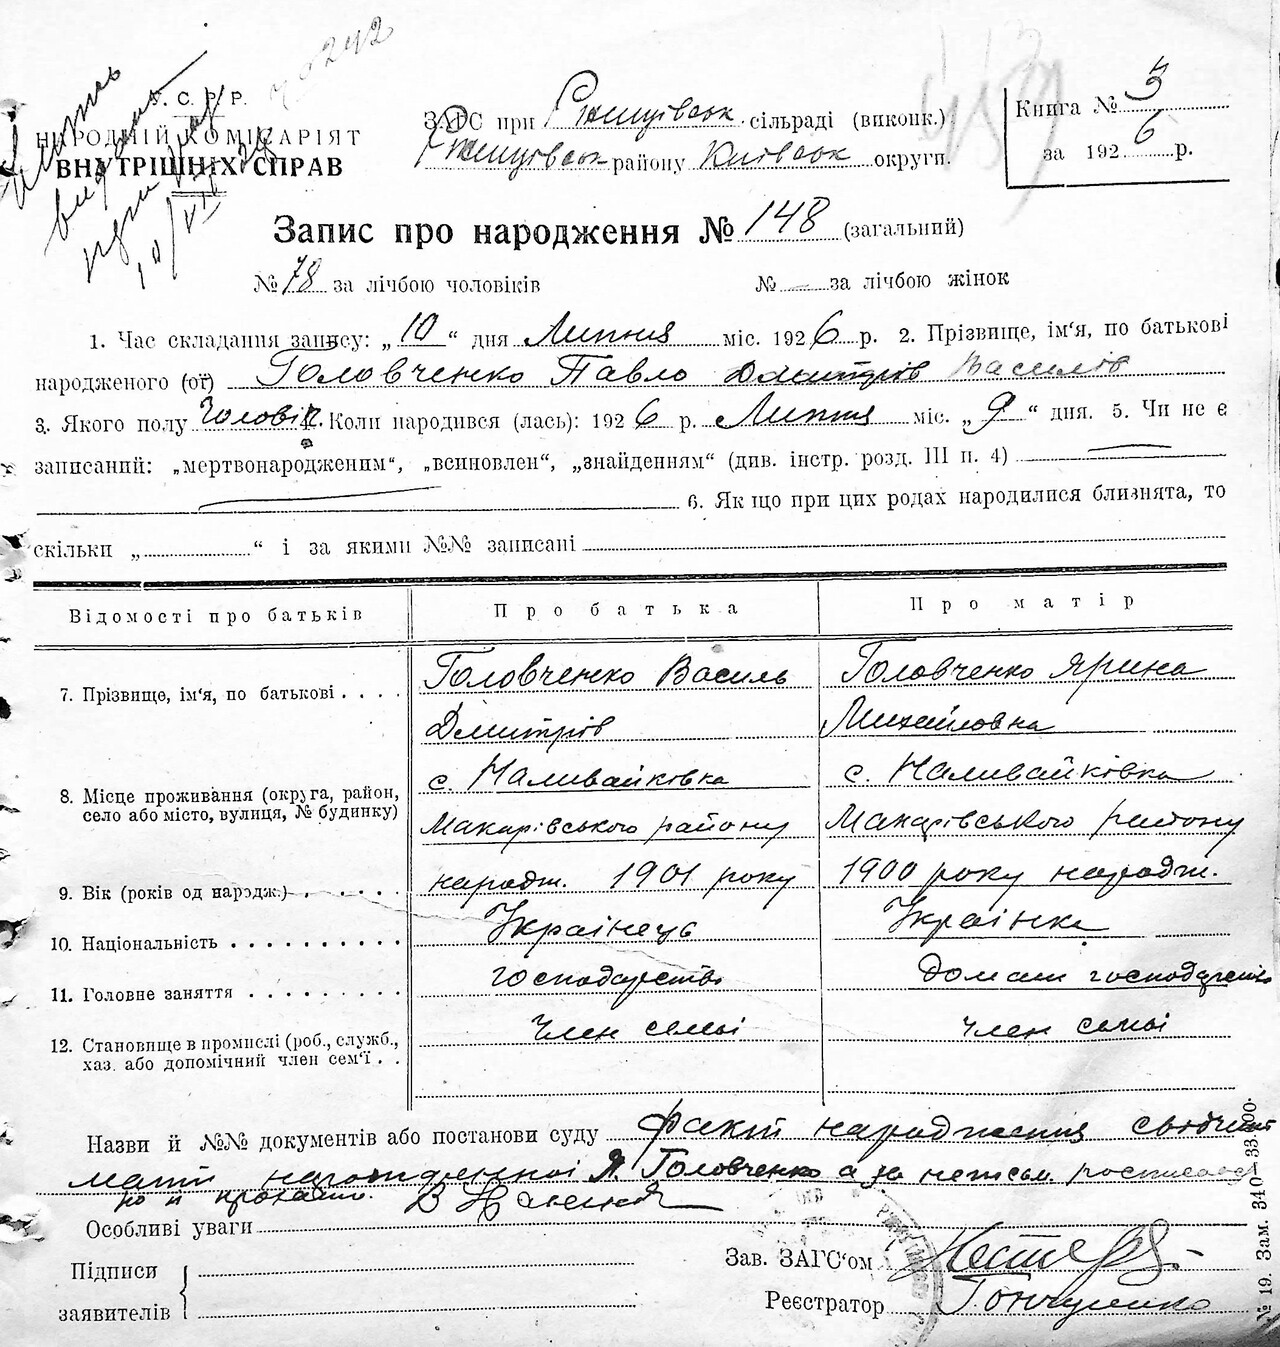 У.С.Р.Р.
НАРОДНІЙ КОМІСАРІЯТ
ВНУТРІШНІХ СПРАВ
ЗАГС при Ржищівськ сільраді (виконк.)
Ржищівськ району Київськ округи.
Книга № 3
за 1926 р.
Запис про народження № 148 (загальний)
№ 78 за лічбою чоловіків № — за лічбою жінок
1. Час складання запису: „10“ дня Липня міс. 1926 р. 2. Прізвище, ім'я, по батькові
народженого (ої) Головченко Павло Дмитрів Василів
3. Якого полу Чоловіч. Коли народився (лась): 1926 р. Липня міс. „9“ дня. 5. Чи не є
записаний: „мертвонародженим“, „всиновлен“, „знайденням“ (див. інстр. розд. III п. 4)
6. Якщо при цих родах народилися близнята, то
скільки „ “ і за якими №№ записані
Відомості про батьків Про батька Про матір
7. Прізвище, ім'я, по батькові . . . . Головченко Василь Головченко Ярина
Дмитрів Михайловна
8. Місце проживання (округа, район, село або місто, вулиця, № будинку) с. Наливайковка с. Наливайківка
Макарівського району Макарівського району
9. Вік (років од народж.) . . . . . народж. 1901 року 1900 року народж.
10. Національність . . . . . . . . . . Українець Українка
11. Головне заняття . . . . . . . . . господарство домашн господарство
12. Становище в промислі (роб., служб., хаз. або допомічний член сем'ї . . Член семьі член семьі
Назви й №№ документів або постанови суду факт народження свідчит
мати народженної Я. Головченко а за неписьм. росписався
по її проханню.
Особливі уваги
Підписи
заявителів
Зав. ЗАГС'ом
Реєстратор Гончаренко
№ 19. Зам. 340—33.000.